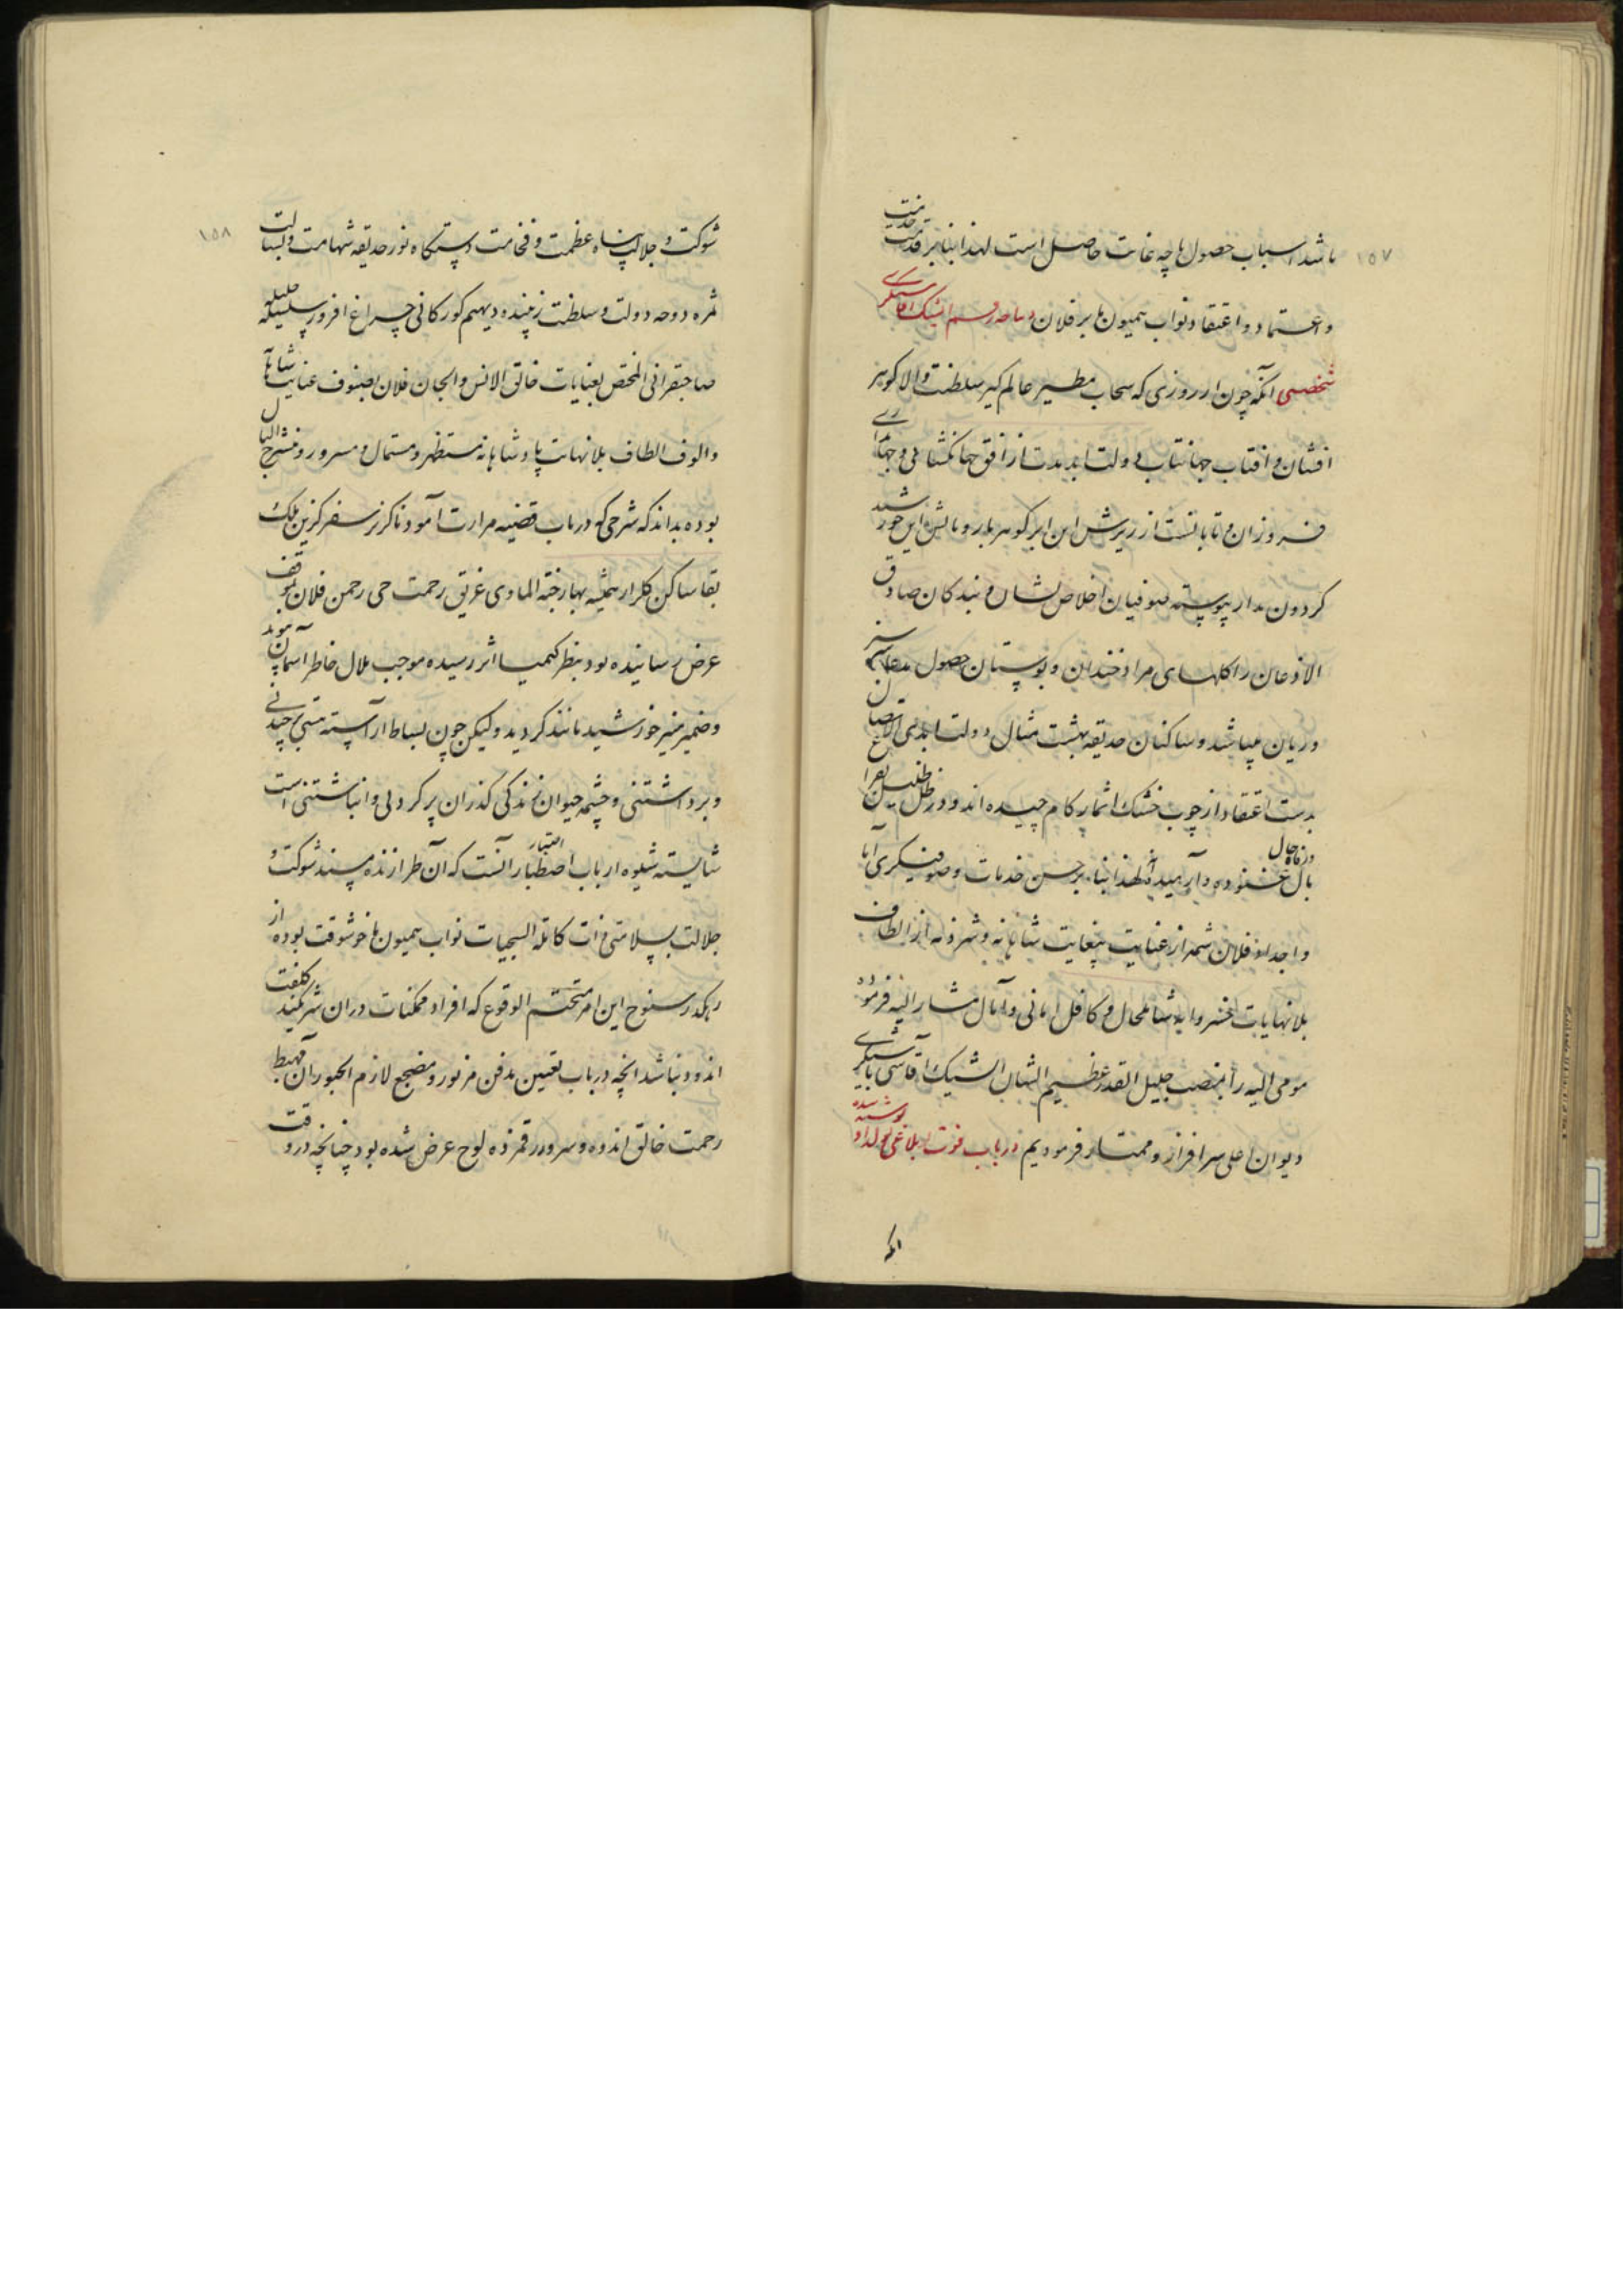 ۱۵۷
باشد اسباب حصول ما چه غایت حاصل است لهذا بنا بر قدمت خدمت
و اعتماد و اعتقاد نواب همیون ما بر فلان دیباچه رقم ایشیک اقاسیگری
شخصی انکه چون از روزی که سحاب مطیر عالم گیر سلطنت والا کوهر
افشان و افتاب جهانتاب دولت ابدمدت از افق جهانکشائی و جهاندارى
فروزان و تابانست از ریزش این ابر کوهربار و تابش این خورشید
کردون مدار پیوسته صوفیان اخلاص نشان و بندکان صادق
الاذعان را کلهای مراد خندان و بوستان حصول مدعا سبز
و ریان میباشد و ساکنان حدیقه بهشت مثال دولت ابدی الاتصال
بدست اعتقاد از چوب خشک اثمار کام چیده اند و در ظل ظلیل
بال غنوده و آرمیده اند لهذا بنابر حسن خدمات و صوفیکری آبا
و اجداد فلان شمه از عنایت بیغایت شاهانه و شرذمه از الطاف
بلانهایات خسروانه شامل حال و کافل امانی و آمال مشار الیه فرموده
مومی الیه را بمنصب جلیل القدر عظیم الشان ایشیک آقاسی باشیگری
دیوان اعلی سرافراز و ممتاز فرمودیم در باب فوت نوشته شده
انکه
۱۵۸
شوکت و جلالت پناه عظمت و فخامت دستکاه نور حدیقه شهامت و بسالت
ثمره دوحه دولت و سلطنت زیبنده دیهیم کورکانی چراغ افروز سلسله جلیله
صاحبقرانی المختص بعنایات خالق الانس والجان فلان بصنوف عنایت شاهانه
والوف الطاف بلانهایت پادشاهانه مستظهر و مستمال و مسرور و منشرح البال
بوده بداند که شرحی که در باب قضیه مرارت آمود ناکزیر سفر کزین ملک
بقا ساکن کلزار همیشه بهار جنة الماوی غریق رحمت حی رحمن فلان بموقف
عرض رسانیده بود بنظر کیمیا اثر رسیده موجب ملال خاطر اسمان پیوند
و ضمیر منیر خورشید مانند کردید ولیکن چون بساط اراسته هستی برچیدنی
و برداشتنی و چشمه حیوان زندکی کذران پر کردنی و انباشتنی است
شایسته شیوه ارباب اصطبار اعتبار آنست که آن طرازنده مسند شوکت و
جلالت بسلامتی ذات کامله السجیات نواب همیون ما خوشوقت بوده از
رهکذر سنوح این امر متحتم الوقوع که افراد ممکنات در ان شریکند کلفت
اندود نباشد انچه در باب تعیین مدفن مزبور و مضجع لازم الحبور ان مهبط
رحمت خالق اندوه و سرور رقمزده لوح عرض شده بود چنانچه در وقت